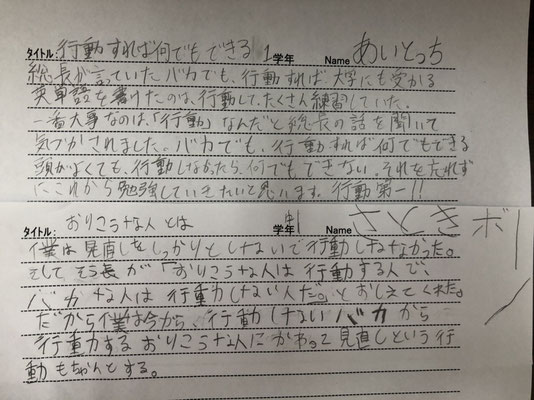 タイトル: 行動すれば何でもできる 1学年 Name あいとっち
総長が言っていた。バカでも、行動すれば大学にも受かる
英単語を書けたのは、行動して、たくさん練習していた。
一番大事なのは、「行動」なんだと総長の話を聞いて
気づかされました。バカでも、行動すれば何でもできる
頭がよくても、行動しなかったら、何でもできない。それを忘れず
にこれから勉強していきたいと思います。行動第一!!
タイトル: おりこうな人とは 学年 中1 Name さときボーン
僕は見直しをしっかりとしないで行動しなかった。
そしてそう長が「おりこうな人は行動する人で、
バカな人は行動しない人だ。」とおしえてくれた。
だから僕は今から、行動しないバカから
行動するおりこうな人にかわって見直しという行
動もちゃんとする。